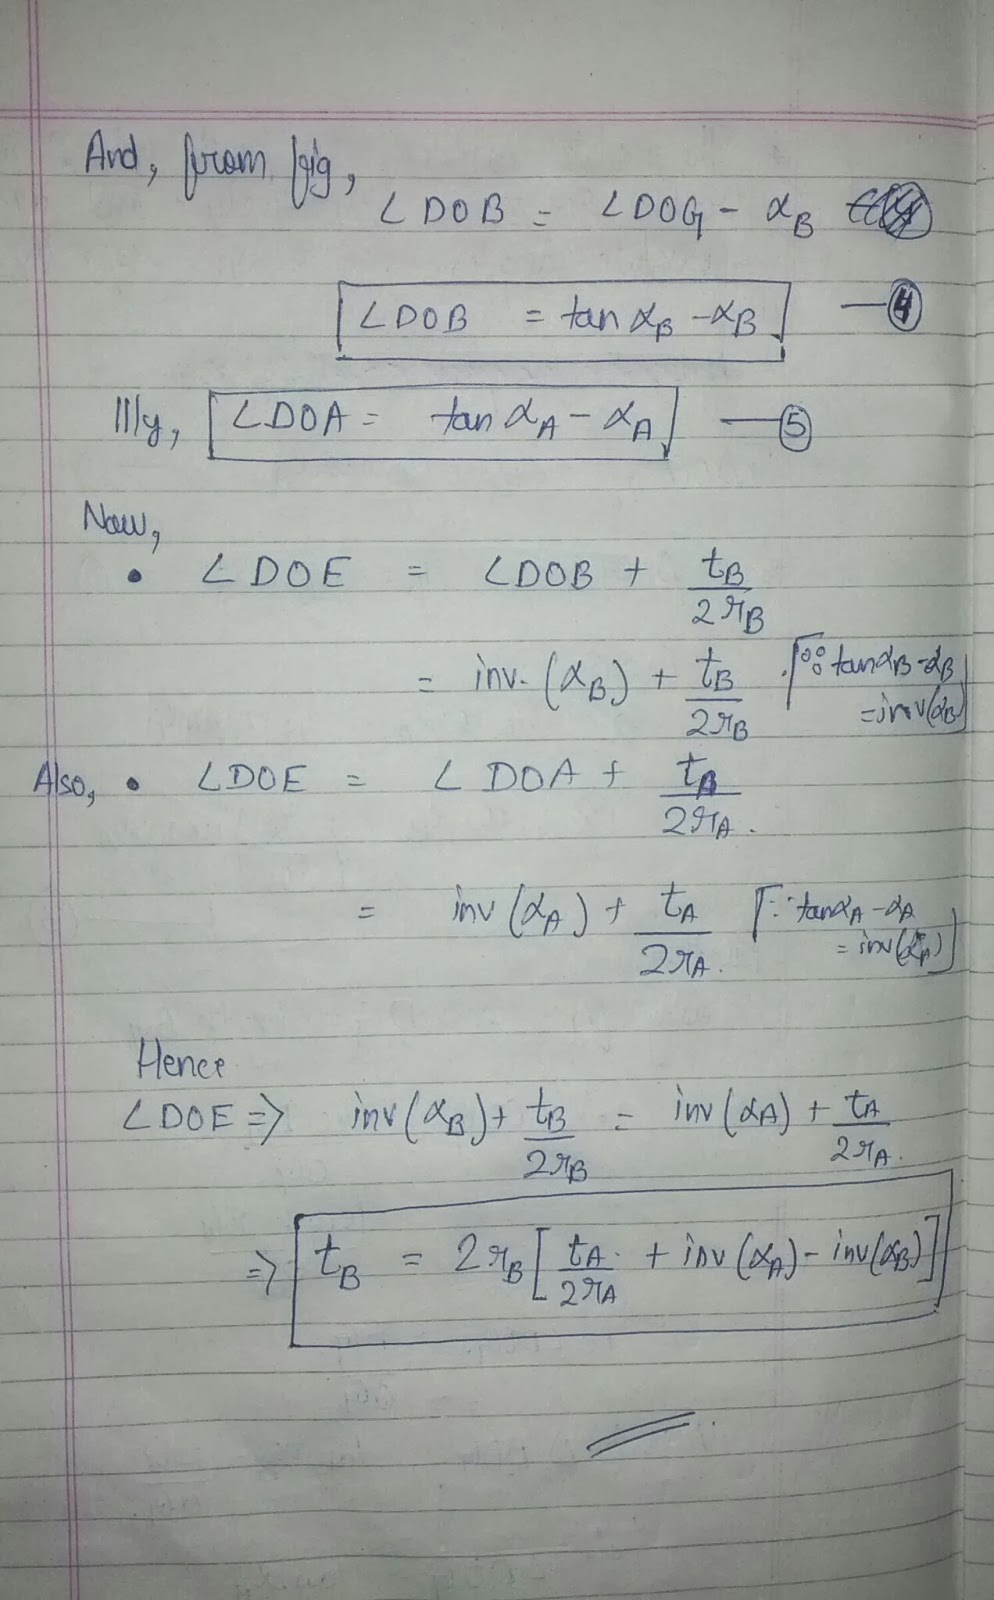 And, from fig,
∠DOB = ∠DOG - αB
∠DOB = tan αB - αB —④
Illy, ∠DOA = tan αA - αA —⑤
Now,
• ∠DOE = ∠DOB + tB/2rB
= inv. (αB) + tB/2rB [∵ tan αB - αB
= inv(αB)]
Also, • ∠DOE = ∠DOA + tA/2rA.
= inv (αA) + tA/2rA. [∵ tan αA - αA
= inv(αA)]
Hence
∠DOE ⇒ inv(αB) + tB/2rB = inv(αA) + tA/2rA.
⇒ tB = 2rB [tA/2rA + inv(αA) - inv(αB)]